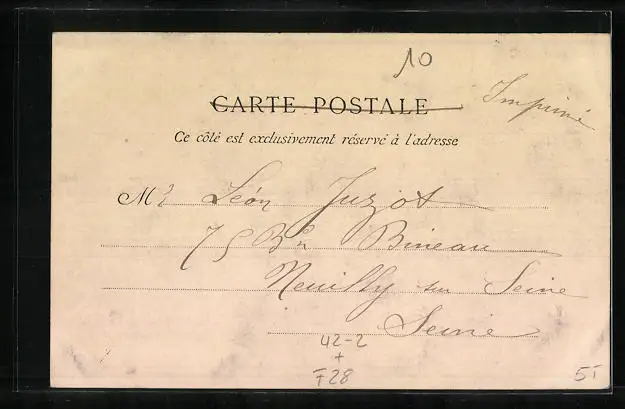 10
CARTE POSTALE
Imprimé
Ce côté est exclusivement réservé à l'adresse
Mr Léon Juzot
75 Bd Bineau
Neuilly sur Seine
Seine
42-2
+
F28
5T